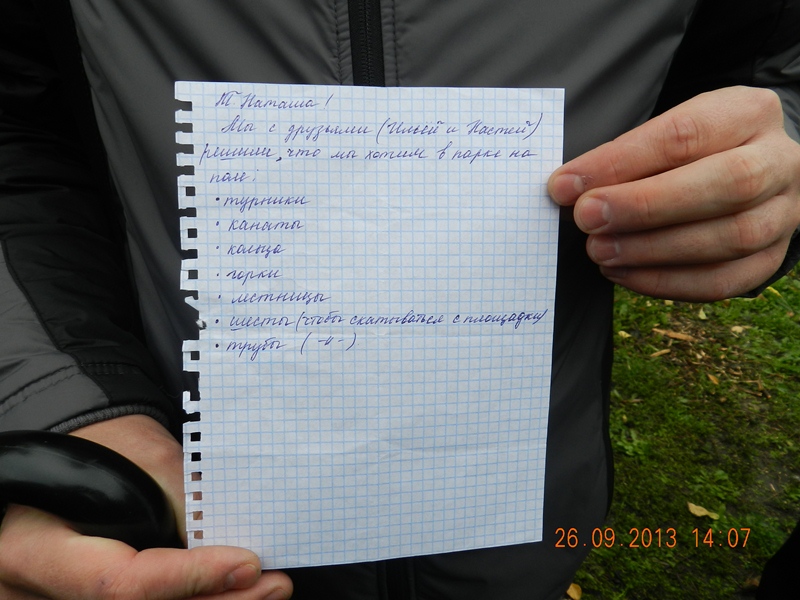 Т Наташа!
Мы с друзьями (Ильёй и Настей)
решили, что мы хотим в парке на
поле:
• турники
• канаты
• кольца
• горки
• лстницы
• шесты (чтобы скатываться с площадки)
• трубы ( -и- )
26.09.2013 14:07